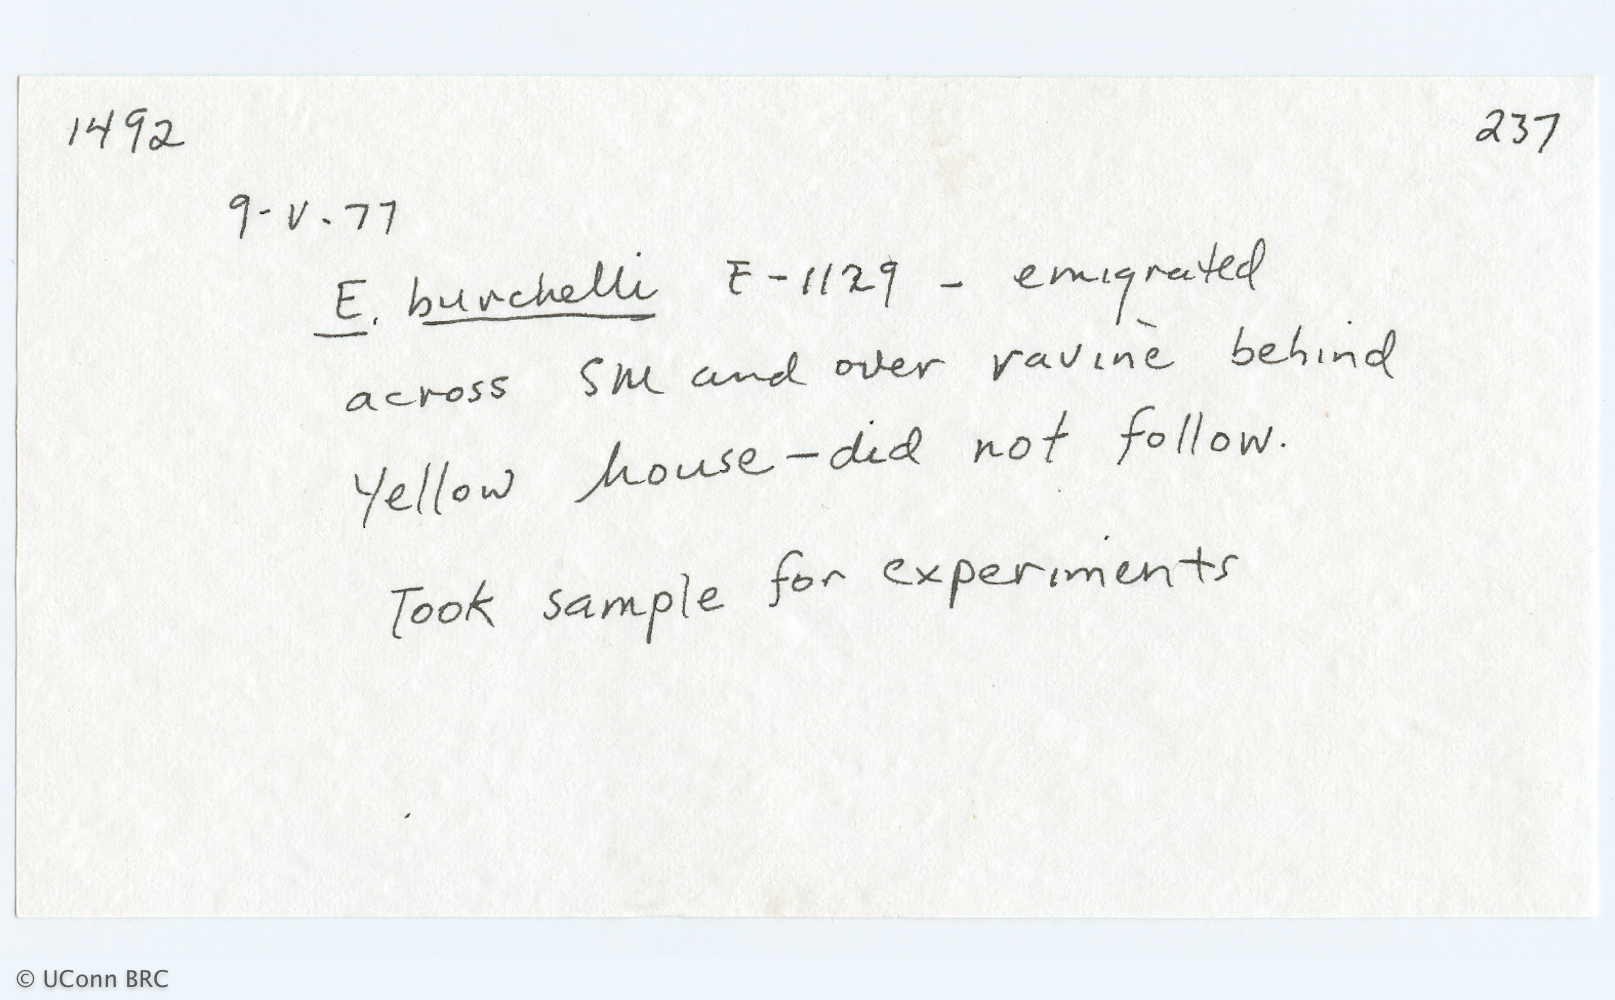 1492 237
9-V-77
E. burchelli E-1129 - emigrated
across SM and over ravine behind
Yellow house - did not follow.
Took sample for experiments
© UConn BRC